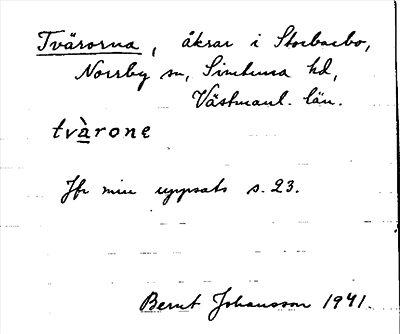 Tvärorna, åkrar i Storbarbo,
Norrby sn, Simtuna hd,
Västmanl. län.
tvàrone
Jfr min uppsats s. 23.
Bernt Johansson 1941.